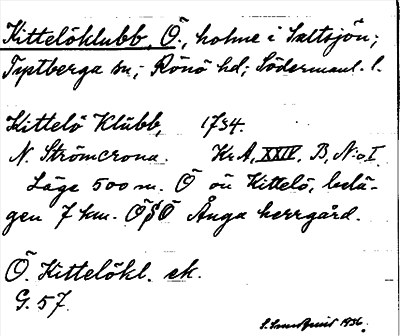 Kittelöklubb, Ö., holme i Saltsjön;
Tystberga sn; Rönö hd; Södermanl. l.
Kittelö Klubb, 1734.
N. Strömcrona. Kr.A, XXIV, B, N:o I
Läge 500 m. Ö ön Kittelö, belä-
gen 7 km. ÖSÖ Ånga herrgård.
Ö. Kittelökl. ek.
G. 57.
1936.